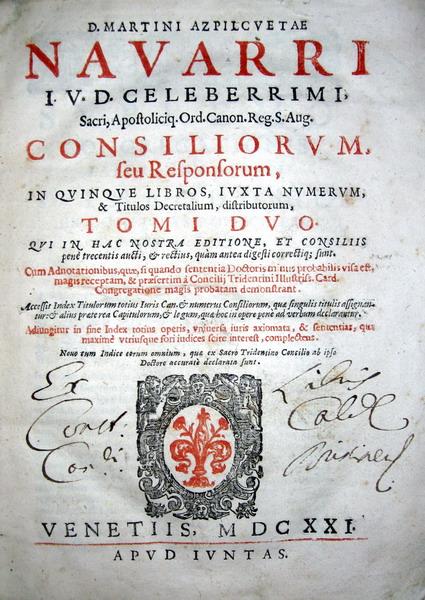 D. MARTINI AZPILCVETAE
NAVARRI
I. V. D. CELEBERRIMI,
Sacri, Apostoliciq. Ord. Canon. Reg. S. Aug.
CONSILIORVM,
seu Responsorum,
IN QVINQVE LIBROS, IVXTA NVMERVM,
& Titulos Decretalium, distributorum,
TOMI DVO.
QVI IN HAC NOSTRA EDITIONE, ET CONSILIIS
penè trecentis aucti, & rectius, quàm antea digesti correctiq; sunt.
Cum Adnotationibus, quæ, si quando sententia Doctoris minus probabilis visa est,
magis receptam, & præsertim à Concilij Tridentini Illustriss. Card.
Congregatione magis probatam demonstrant.
Accessit Index Titulorum totius Iuris Can. & numerus Consiliorum, quæ singulis titulis assignan-
tur: & alius præterea Capitulorum, & legum, quæ hoc in opere penè ad verbum declarantur.
Adiungitur in fine Index totius operis, vniuersa iuris axiomata, & sententias, quæ
maximè vtriusque fori iudices scire interest, complectens.
Nouo tum Indice eorum omnium, quæ ex Sacro Tridentino Concilio ab ipso
Doctore accuratè declarata sunt.
Ex Libris
VENETIIS, M DC XXI.
APVD IVNTAS.